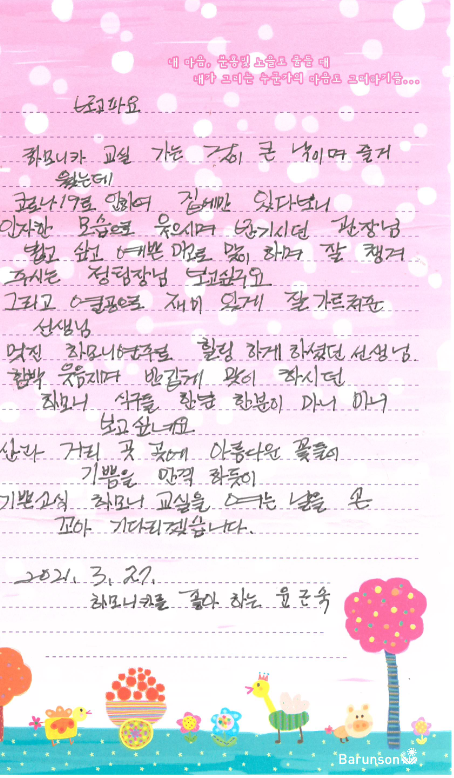 내 마음, 분홍빛 노을로 물들 때
내가 그리는 누군가의 마음도 그러하기를...
보고파요
하모니카 교실 가는 것이 큰 낙이며 즐거
웠는데
코로나19로 인하여 집에만 있다보니
인자한 모습으로 웃으시며 반기시던 관장님
밝고 싶고 예쁜 로 맞이 하며 잘 챙겨
주시는 정팀장님 보고싶구요
그리고 열공으로 재미 있게 잘 가르쳐준
선생님
멋진 하모니연주로 힐링 하게 하셨던 선생님
함박 웃음지며 반갑게 맞이 하시던
하모니 식구들 한분 한분이 마니 마니
보고 싶네요
산과 거리 곳 곳에 아름다운 꽃들이
기쁨을 만끽 하듯이
기쁜소식 하모니 교실을 여는 날을 손
꼬아 기다리겠습니다.
2021. 3. 27.
하모니카를 좋아 하는 윤근숙
Barunson